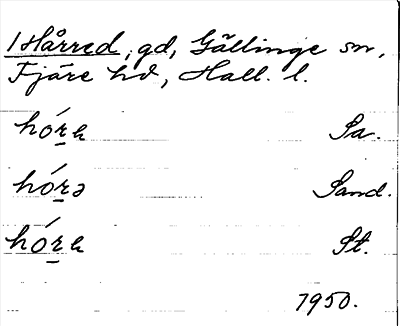 1 Hårred, gd, Gällinge sn,
Fjäre hd, Hall. l.
hórа Sa.
hórə Sand.
hórа St.
1950.